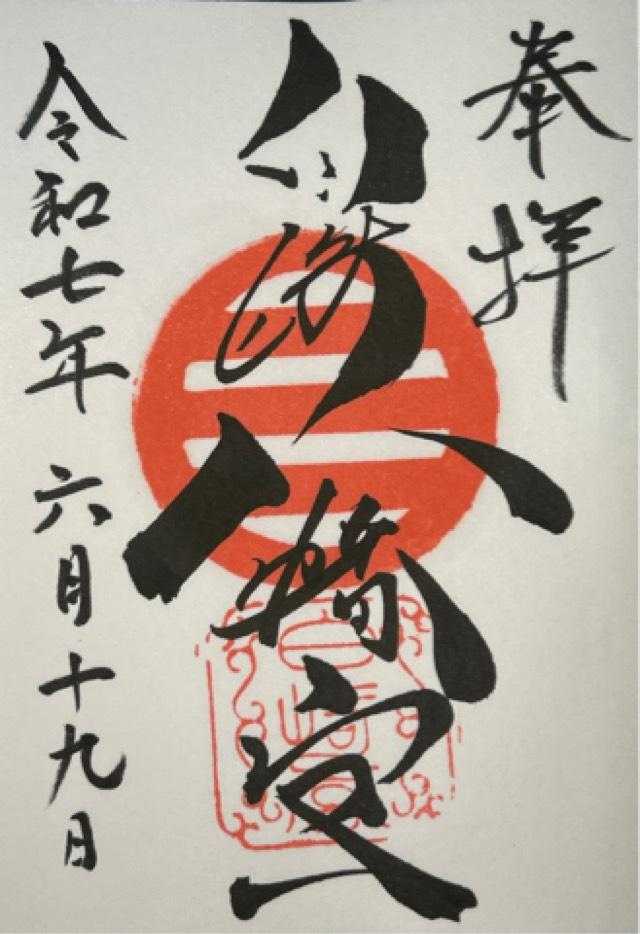 奉拝
八幡宮
令和七年 六月十九日